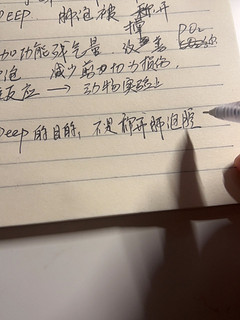 DEEP 肺泡被 撑开
PO₂
功能残气量 改善
减少剪切力损伤,
反应 → 动物实验上
Deep的目的,不是撑开肺泡腔